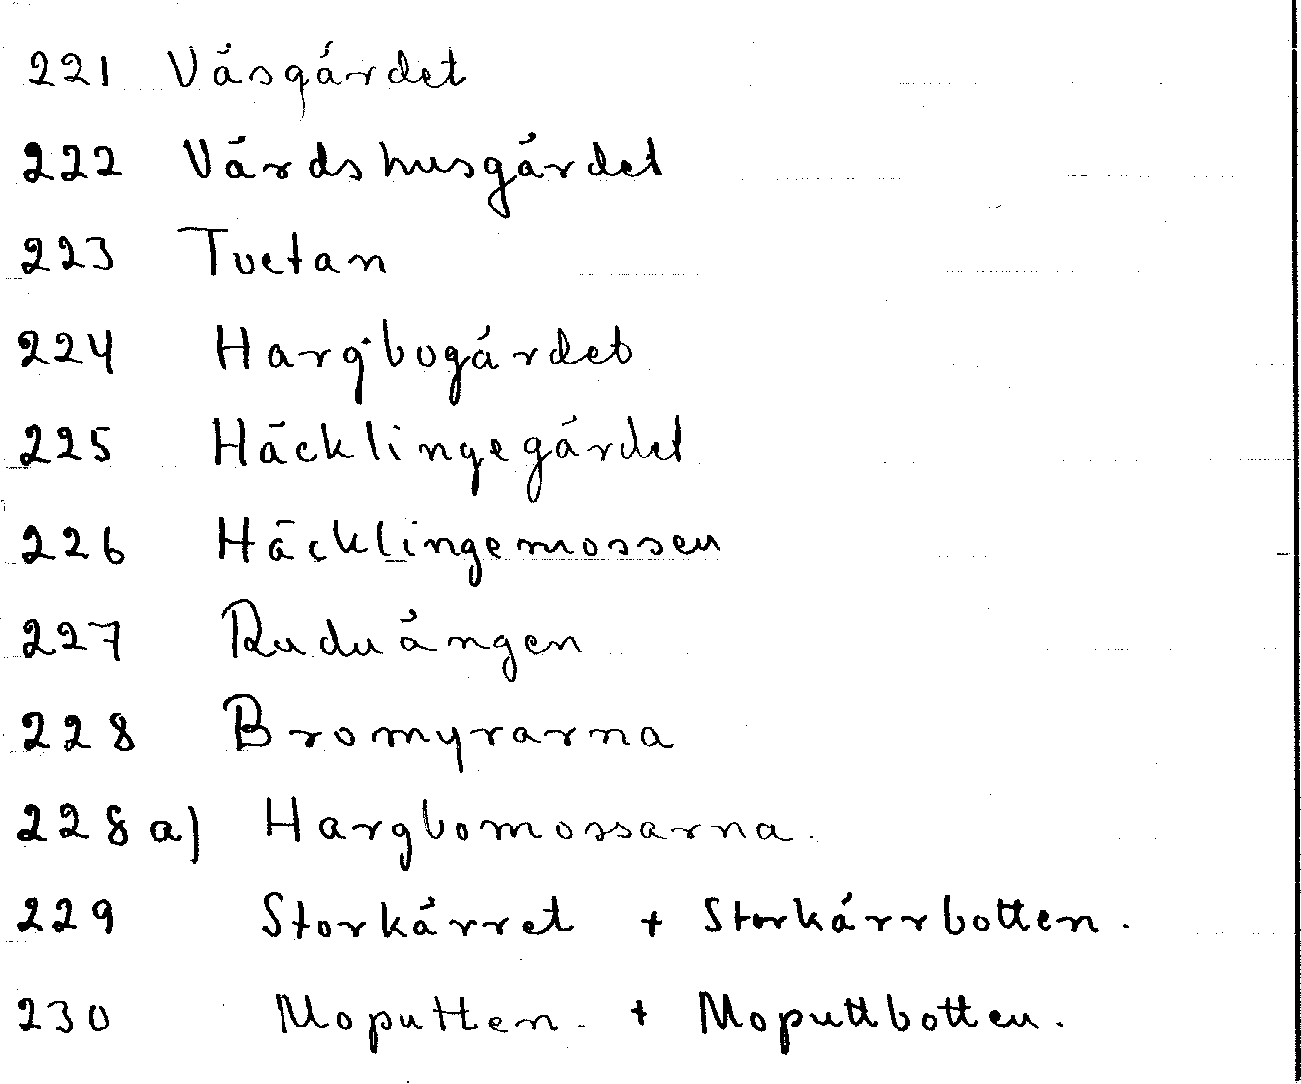 221 Väsgärdet
222 Värdshusgärdet
223 Tvetan
224 Hargbogärdet
225 Häcklingegärdet
226 Häcklingemossen
227 Ruduängen
228 Bromyrarna
228 a) Hargbomossarna.
229 Storkärret + Storkärrbotten.
230 Moputten. + Moputtbotten.